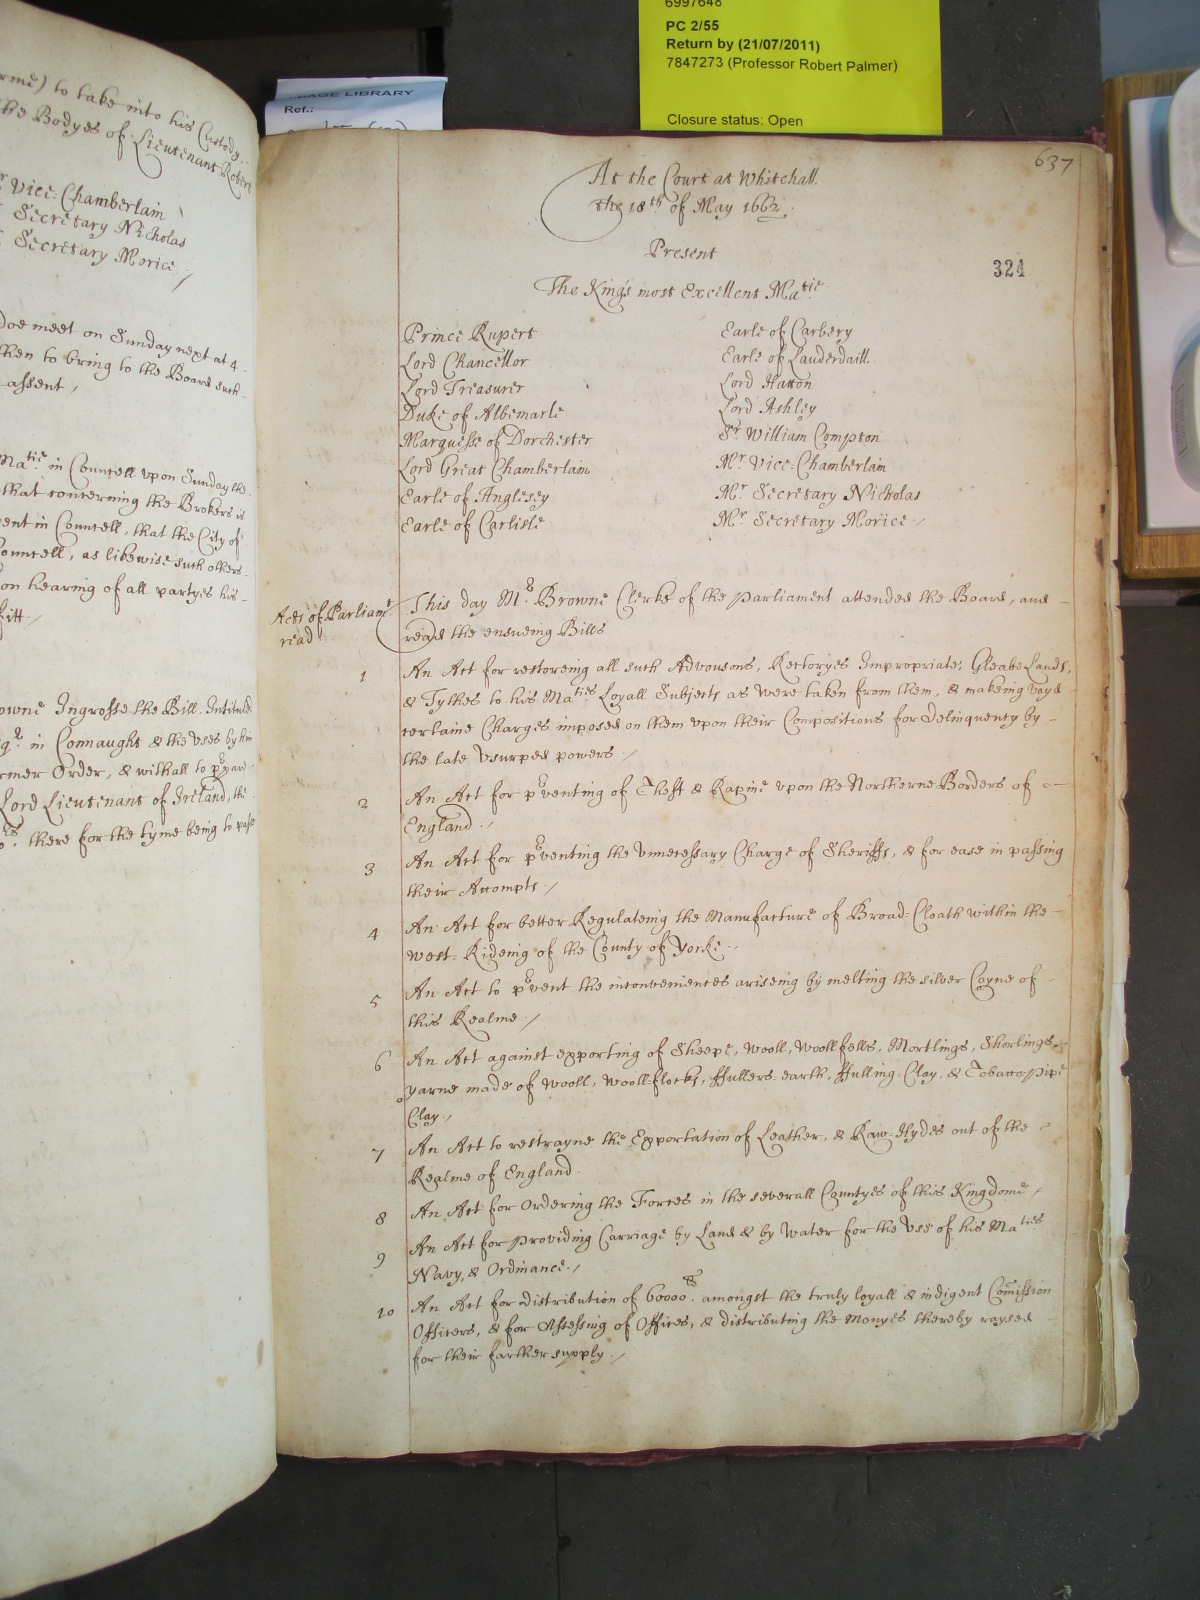 6997648
PC 2/55
Return by (21/07/2011)
7847273 (Professor Robert Palmer)
Closure status: Open
IMAGE LIBRARY
Ref.:
to take into his Custody
the Bodyes of Lieutenant Robert
Vice-Chamberlain
Secretary Nicholas
Secretary Morice
doe meet on Sunday next at 4
to bring to the Board such
assent
Ma:tie in Councell upon Sunday the
that concerning the Brokers is
in Councell, that the City of
Councell, as likewise such others
on hearing of all partyes his
fitt
Ingrosse the Bill Intituled
in Connaught & the uses by him
Order, & withall to
Lord Lieutenant of Ireland, the
there for the tyme being to passe
637
At the Court at Whitehall
the 18th of May 1662.
Present
324
The Kings most Excellent Ma:tie
Prince Rupert
Lord Chancellor
Lord Treasurer
Duke of Albemarle
Marquesse of Dorchester
Lord Great Chamberlain
Earle of Anglesey
Earle of Carlisle
Earle of Carbery
Earle of Lauderdaill
Lord Hatton
Lord Ashley
Sr William Compton
Mr Vice-Chamberlain
Mr Secretary Nicholas
Mr Secretary Morice
Acts of Parliamt
read
This day Mr Browne Clerke of the Parliament attended the Board, and
read the ensueing Bills
1 An Act for restoreing all such Advousons, Rectoryes Impropriate, Gleabe Lands,
& Tythes to his Ma:ties Loyall Subjects as were taken from them, & makeing voyd
certaine Charges imposed on them upon their Compositions for Delinquency by
the late Usurped powers
2 An Act for pventing of Theft & Rapine upon the Northerne Borders of
England
3 An Act for pventing the Unnecessary Charge of Sheriffs, & for ease in passing
their Accompts
4 An Act for better Regulateing the Manufacture of Broad-Cloath within the
West-Rideing of the County of Yorke
5 An Act to pvent the inconveniences ariseing by melting the silver Coyne of
this Realme
6 An Act against exporting of Sheepe, Wooll, Woollfells, Mortlings, Shorlings,
yarne made of Wooll, Woollflocks, ffullers-earth, ffulling-Clay, & Tobacco-pipe
Clay
7 An Act to restrayne the Exportation of Leather, & Raw-Hydes out of the
Realme of England
8 An Act for Ordering the Forces in the severall Countyes of this Kingdome
9 An Act for Providing Carriage by Land & by Water for the Use of his Ma:ties
Navy, & Ordinance
10 An Act for distribution of 60000 amongst the truly loyall & indigent Comission
Officers, & for Assessing of Offices, & distributing the Monyes thereby raysed
for their farther supply